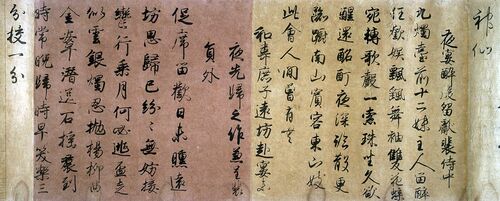 夜宴醉後留獻裴侍中
九燭臺前十二姝主人留醉
任歡娛飄颻舞袖雙飛蝶
宛轉歌聲一索珠坐久欲
醒還酩酊夜深臨散更
踟躕南山賓客東山妓
此會人間曾有無
和韋庶子遠坊赴宴未
夜先歸之作兼呈裴
員外
促席留歡日未曛遠
坊思歸已紛紛無妨按
轡行乘月何必逃盃走
似雲銀燭忍拋楊柳曲
金鞍潛送石榴裙到
時常晚歸時早笑樂三
分校一分